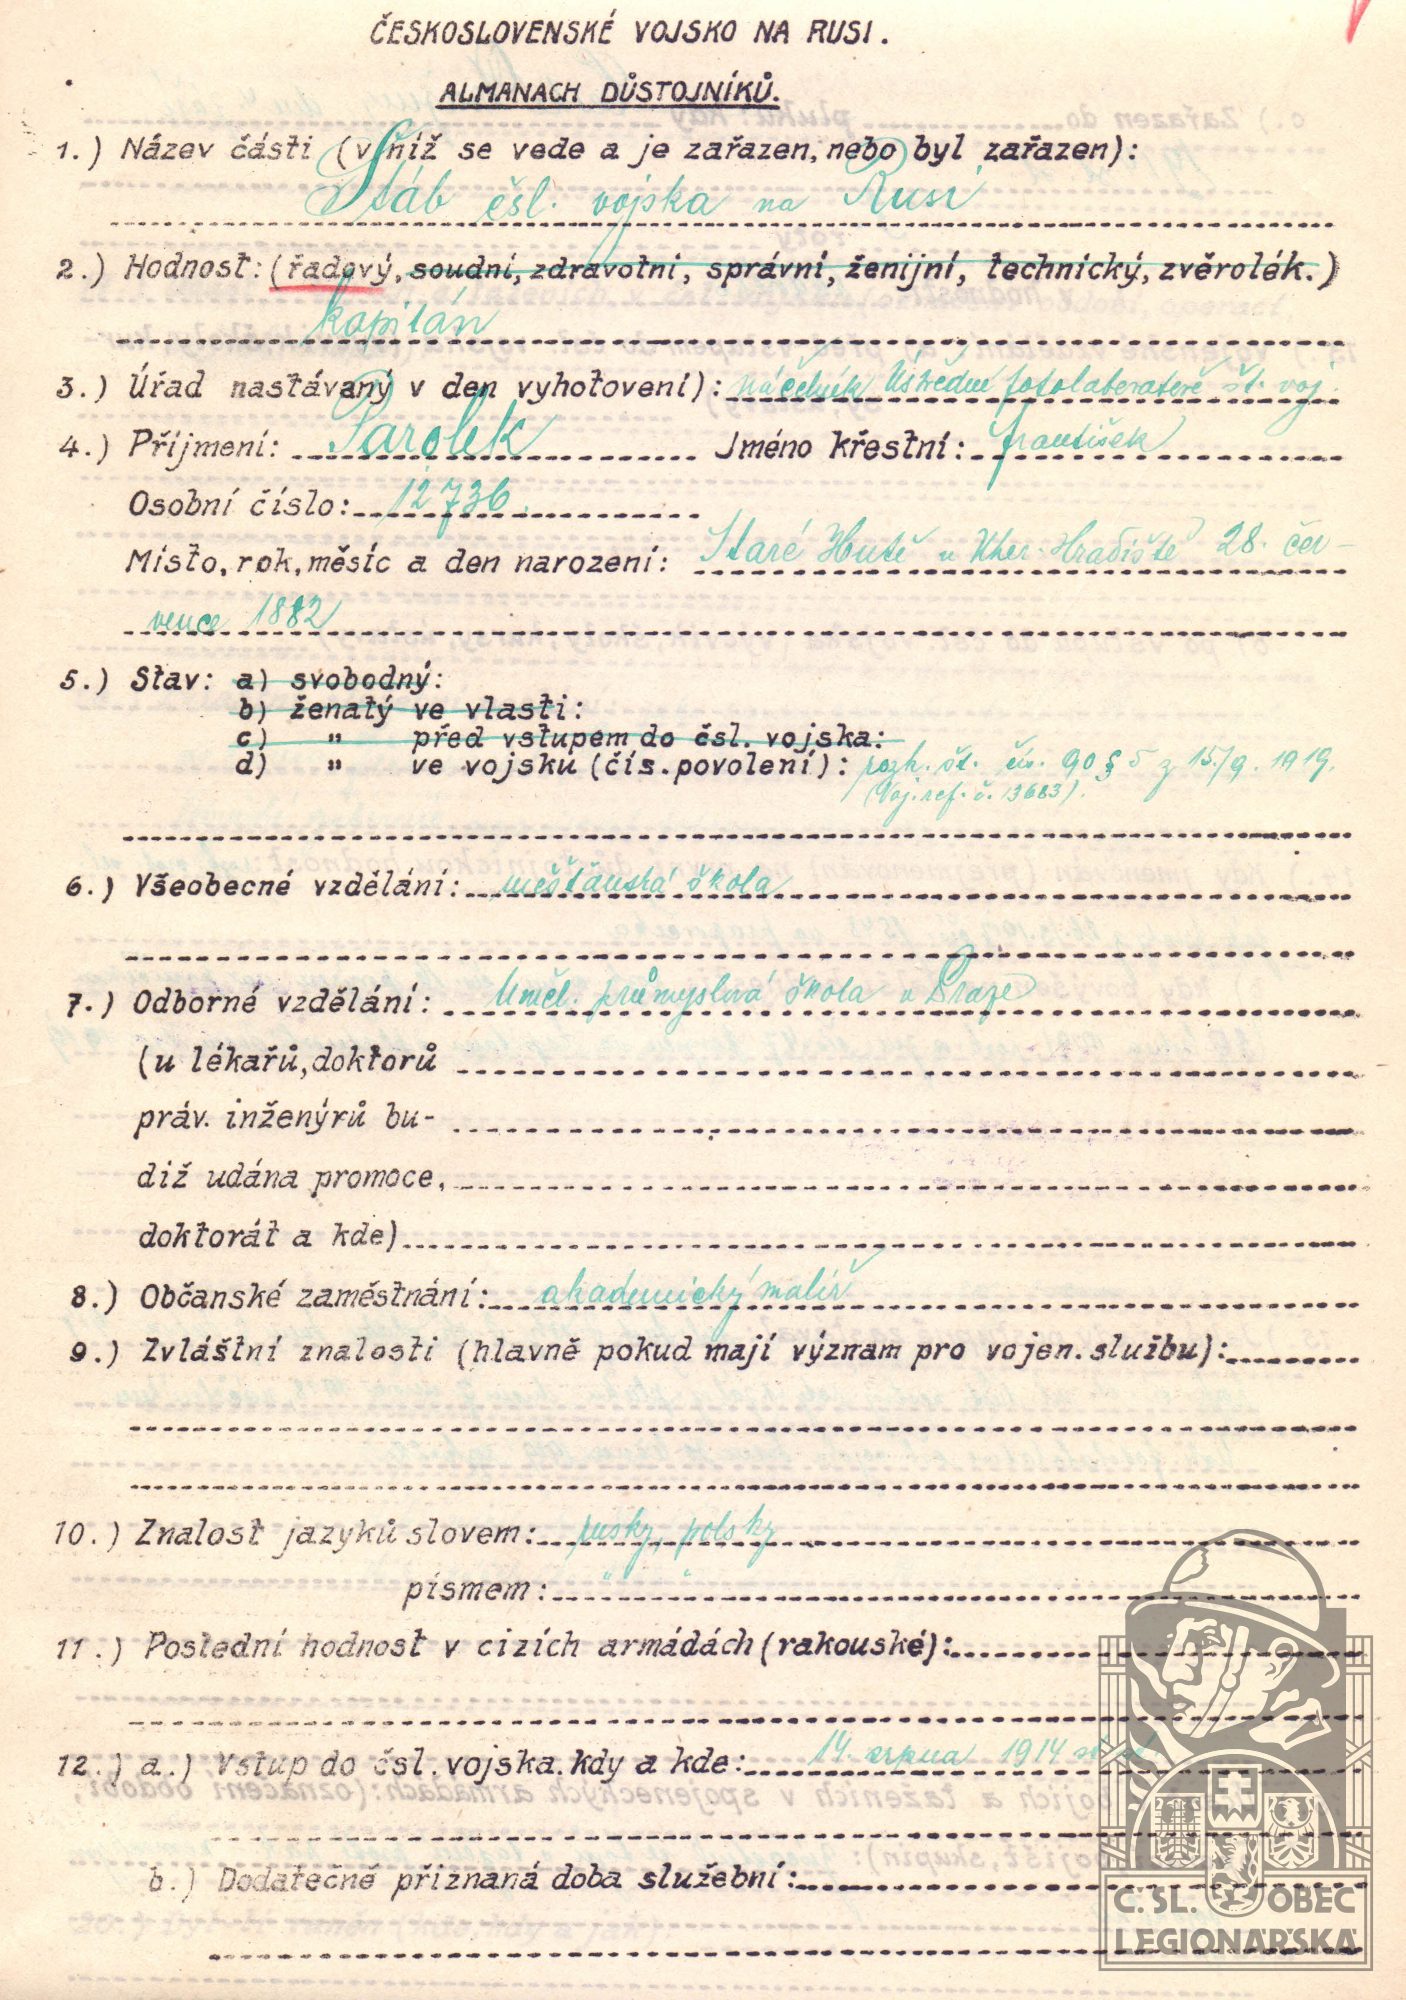 ČESKOSLOVENSKÉ VOJSKO NA RUSI.
ALMANACH DŮSTOJNÍKŮ.
1.) Název části (v níž se vede a je zařazen, nebo byl zařazen):
Štáb čsl. vojska na Rusi
2.) Hodnost: (řadový, soudní, zdravotní, správní, ženijní, technický, zvěrolék.)
kapitán
3.) Úřad nastávaný v den vyhotovení): náčelník Ústřední fotolaboratoře št. voj.
4.) Příjmení: Parolek Jméno křestní: František
Osobní číslo: 12736.
Místo, rok, měsíc a den narození: Staré Hutě u Uher. Hradiště 28. čer-
vence 1882
5.) Stav: a) svobodný:
b) ženatý ve vlasti:
c) " před vstupem do čsl. vojska:
d) " ve vojsku (čís. povolení): rozh. št. čís. 90 § 5 z 15./9. 1919.
(Voj. ref. č. 13683).
6.) Všeobecné vzdělání: měšťanská škola
7.) Odborné vzdělání: Uměl. průmyslová škola v Praze
(u lékařů, doktorů
práv. inženýrů bu-
diž udána promoce,
doktorát a kde)
8.) Občanské zaměstnání: akademický malíř
9.) Zvláštní znalosti (hlavně pokud mají význam pro vojen. službu):
10.) Znalost jazyků slovem: rusky, polsky
písmem: " "
11.) Poslední hodnost v cizích armádách (rakouské):
12.) a.) Vstup do čsl. vojska. kdy a kde: 14. srpna 1914
b.) Dodatečně přiznaná doba služební:
Č.SL. OBEC
LEGIONÁŘSKÁ